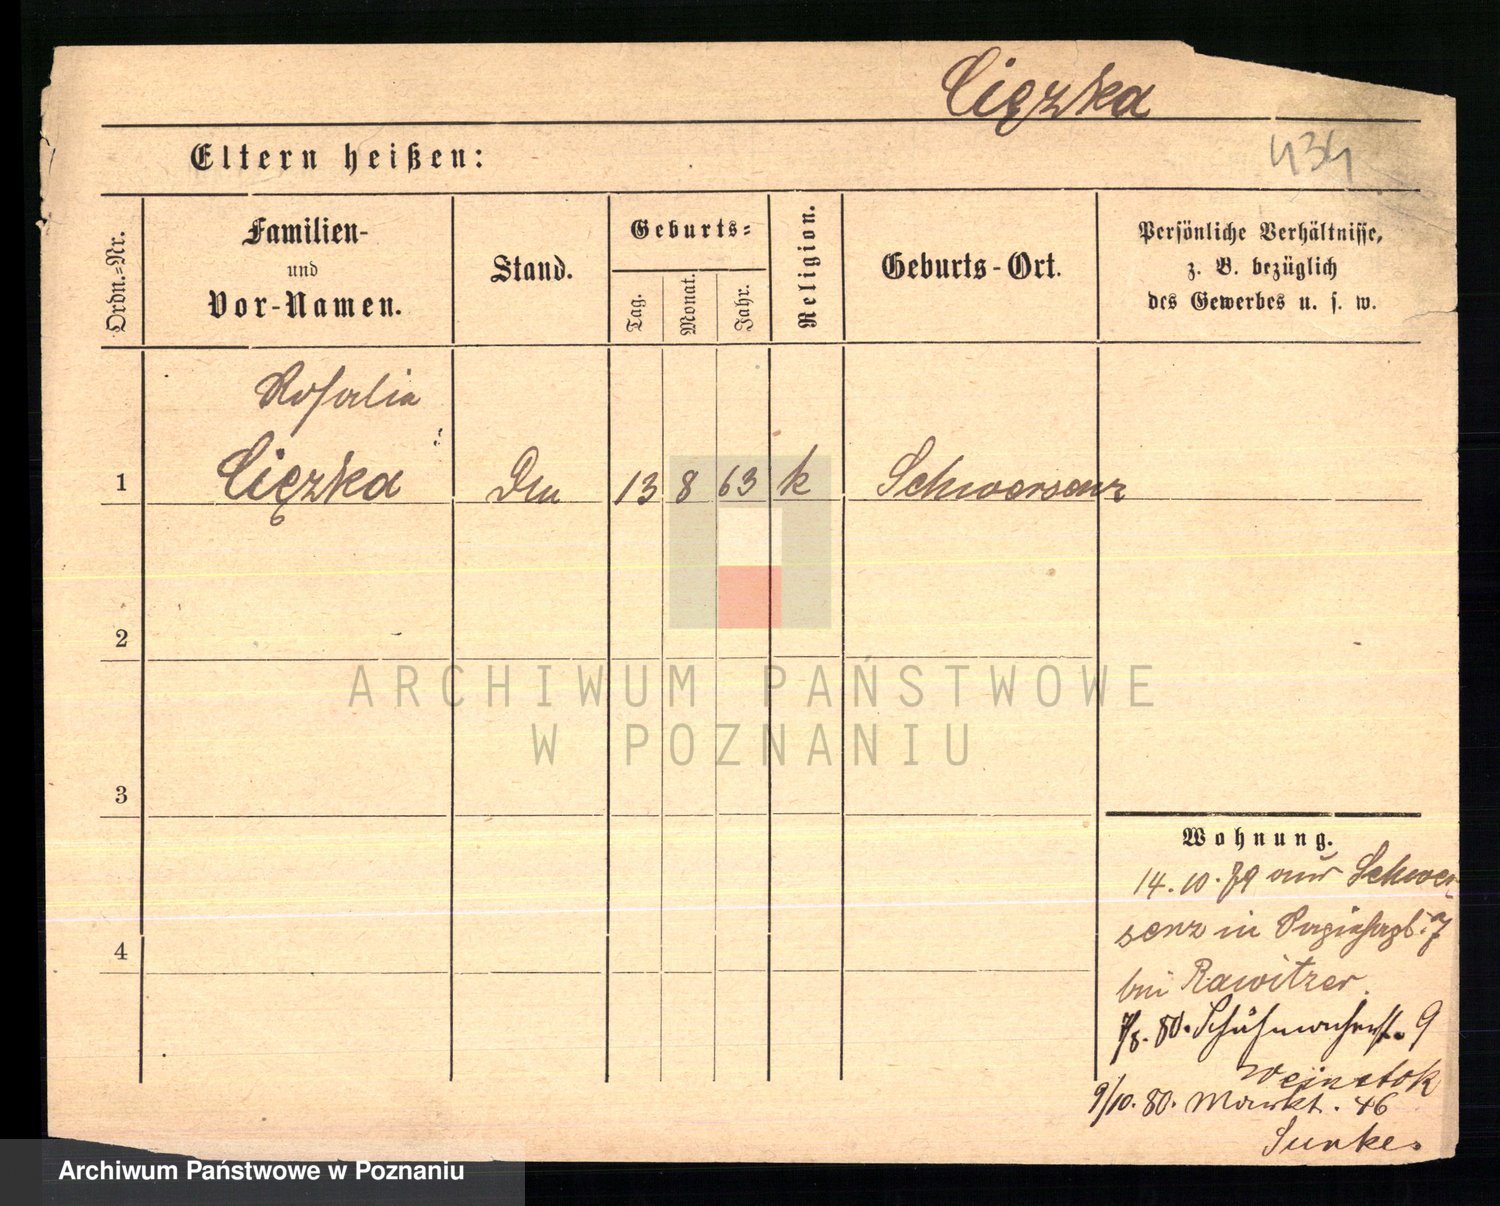 Ciężka
434
Eltern heißen:
Ordn.-Nr.
Familien-
und
Vor-Namen.
Stand.
Geburts-
Tag.
Monat.
Jahr.
Religion.
Geburts-Ort.
Persönliche Verhältnisse,
z. B. bezüglich
des Gewerbes u. s. w.
Rosalia
1 Ciężka 13 8 63 k Schwersenz
2
3
4
Wohnung.
14.10.79 aus Schwer-
senz in
bei Rawitzer.
7/8. 80. Schuhmacherst. 9
Weinstok
9/10. 80. Markt. 46
ARCHIWUM PAŃSTWOWE
W POZNANIU
Archiwum Państwowe w Poznaniu